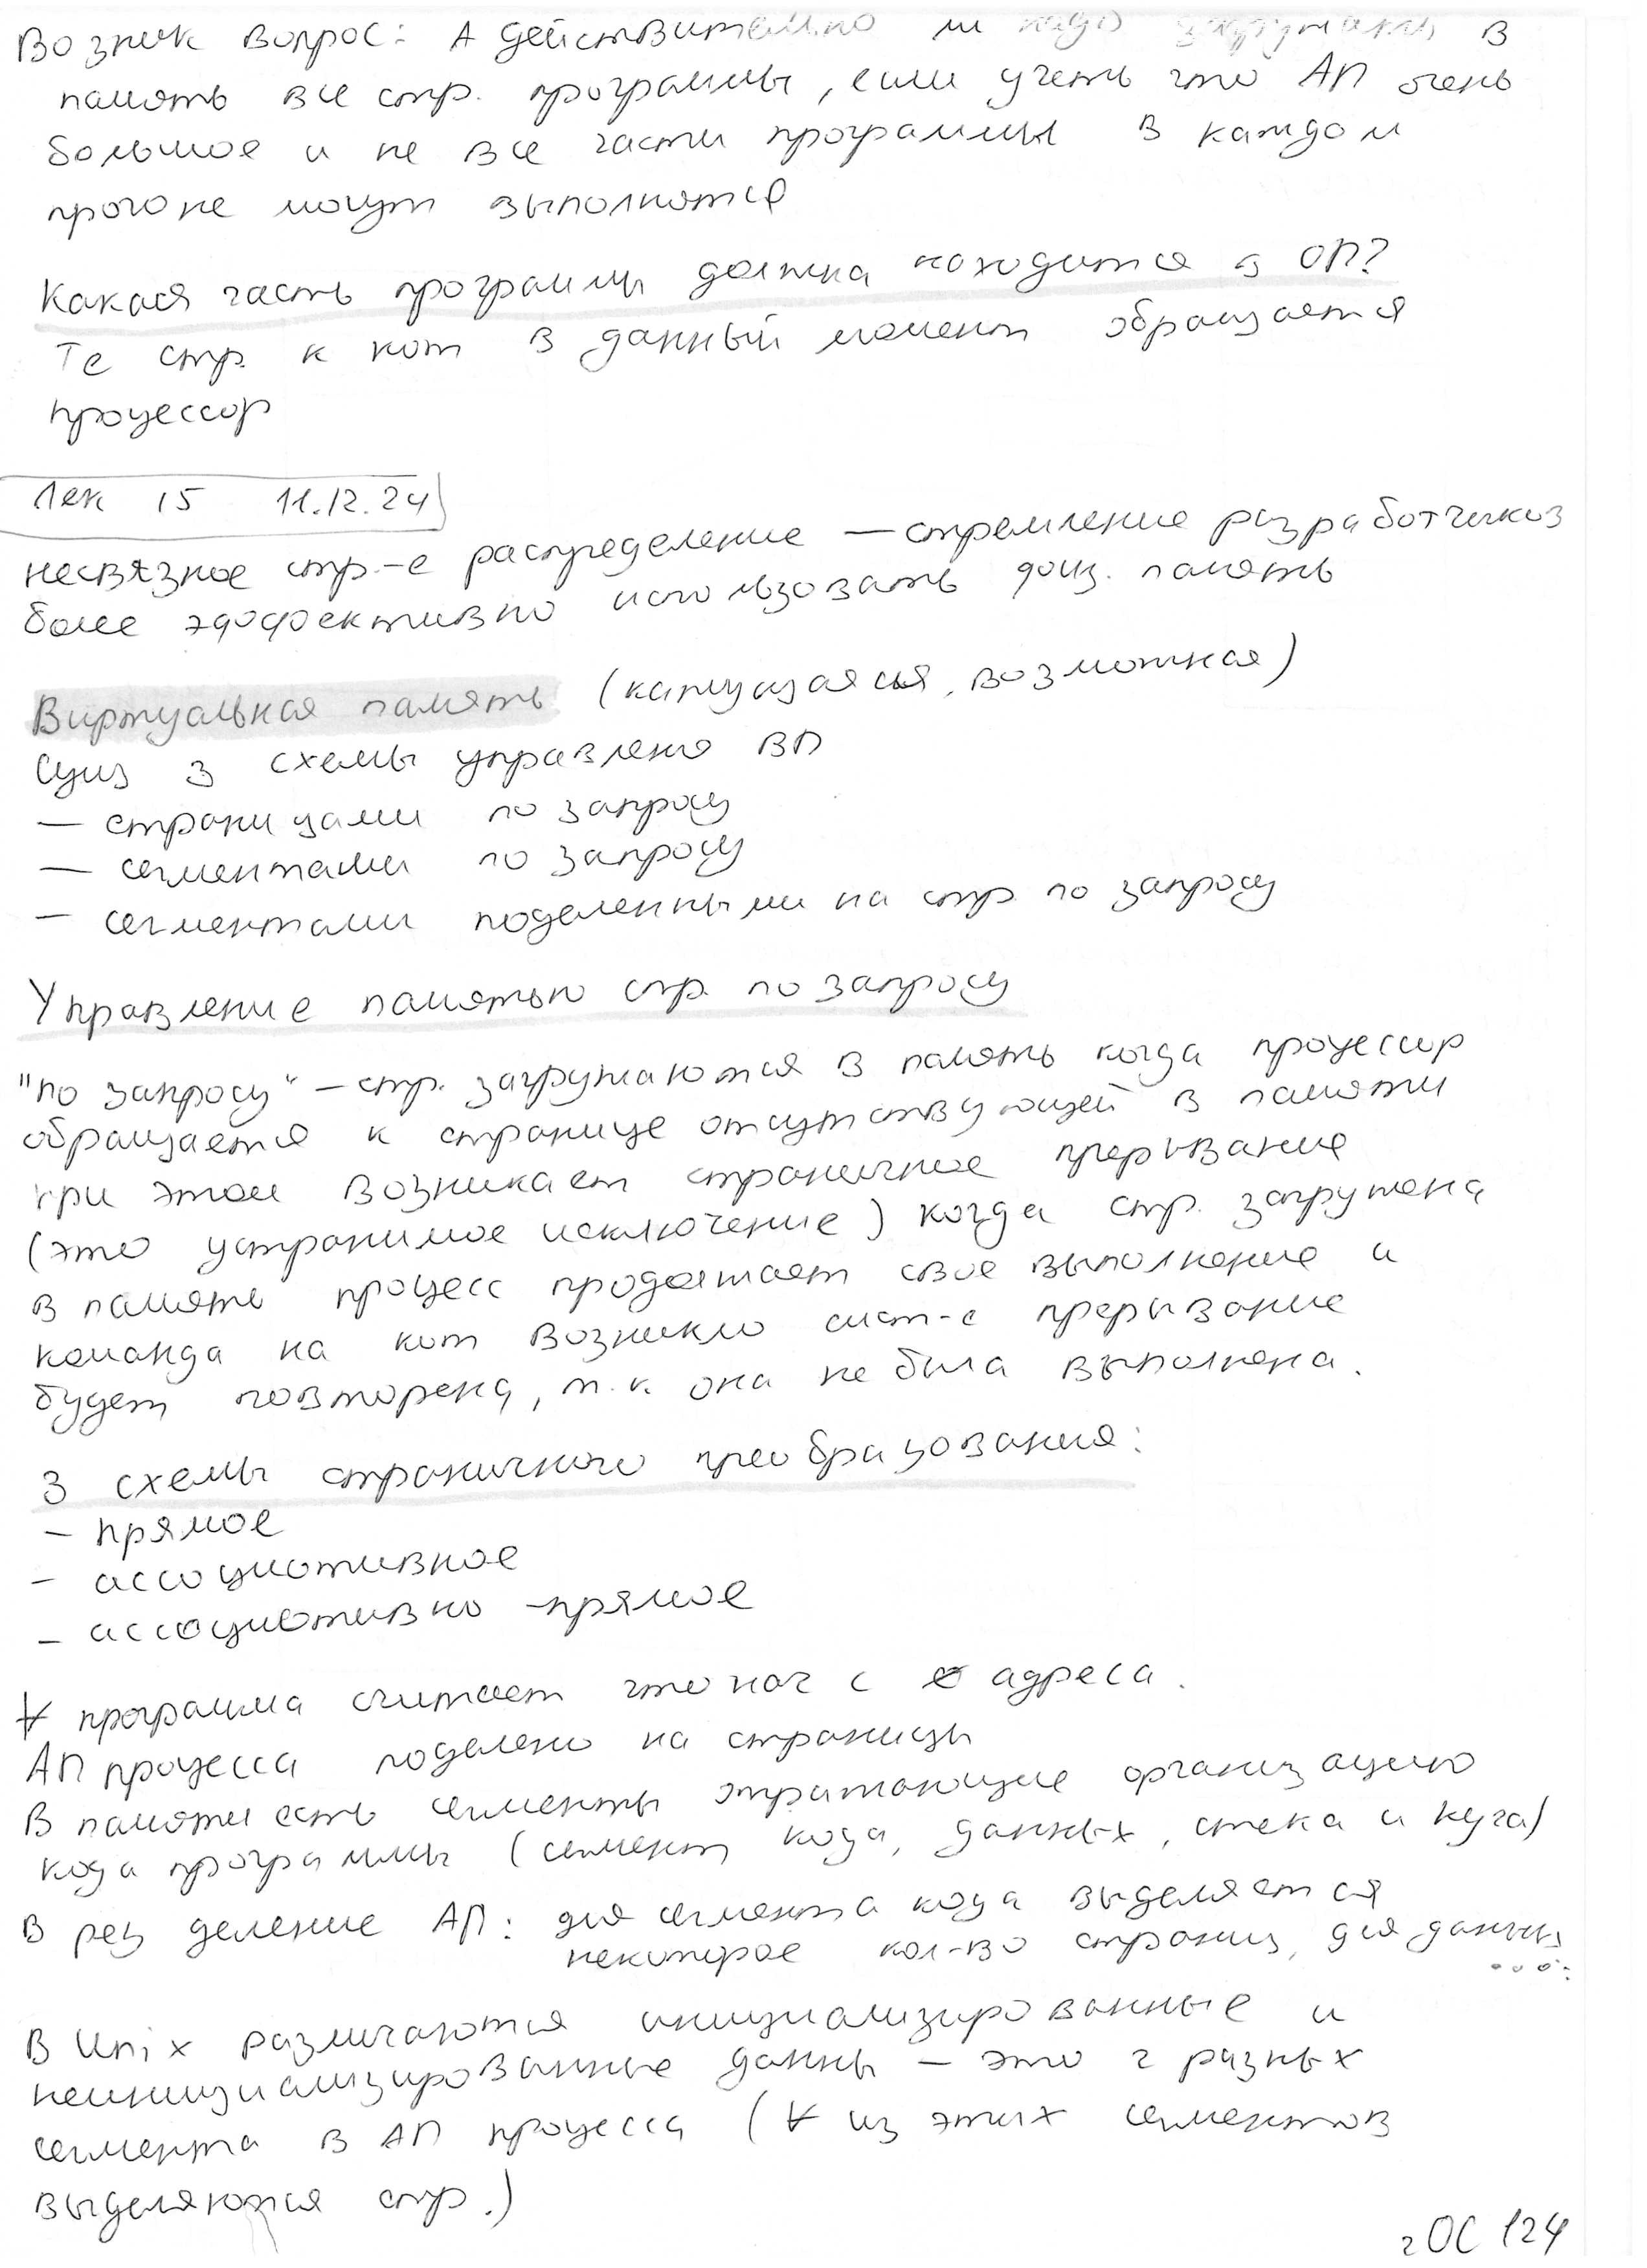 Возник вопрос: А действительно ли надо загружать в
память все стр. программы, если учесть что АП очень
большое и не все части программы в каждом
прогоне могут выполнятся
Какая часть программы должна находится в ОП?
Те стр. к кот в данный момент обращается
процессор
Лек 15 11.12.24
несвязное стр-е распределение — стремление разработчиков
более эффективно использовать физ. память
Виртуальная память (кажущаяся, возможная)
Сущ 3 схемы управления ВП
— страницами по запросу
— сегментами по запросу
— сегментами поделенными на стр по запросу
Управление памятью стр. по запросу
"по запросу" — стр. загружаются в память когда процессор
обращается к странице отсутствующей в памяти
при этом возникает страничное прерывание
(это устранимое исключение) когда стр. загружена
в память процесс продолжает свое выполнение и
команда на кот возникло сист-е прерывание
будет повторена, т.к. она не была выполнена.
3 схемы страничного преобразования:
- прямое
- ассоциативное
- ассоциативно-прямое
∀ программа считает что нач с 0 адреса.
АП процесса поделено на страницы
В памяти есть сегменты отражающие организацию
кода программы (сегмент кода, данных, стека и куча)
В рез деление АП: для сегмента кода выделяется
некоторое кол-во страниц, для данных
...
В Unix различаются инициализированные и
неинициализированные данны — это 2 разных
сегмента в АП процесса (∀ из этих сегментов
выделяются стр.)
2ОС 124